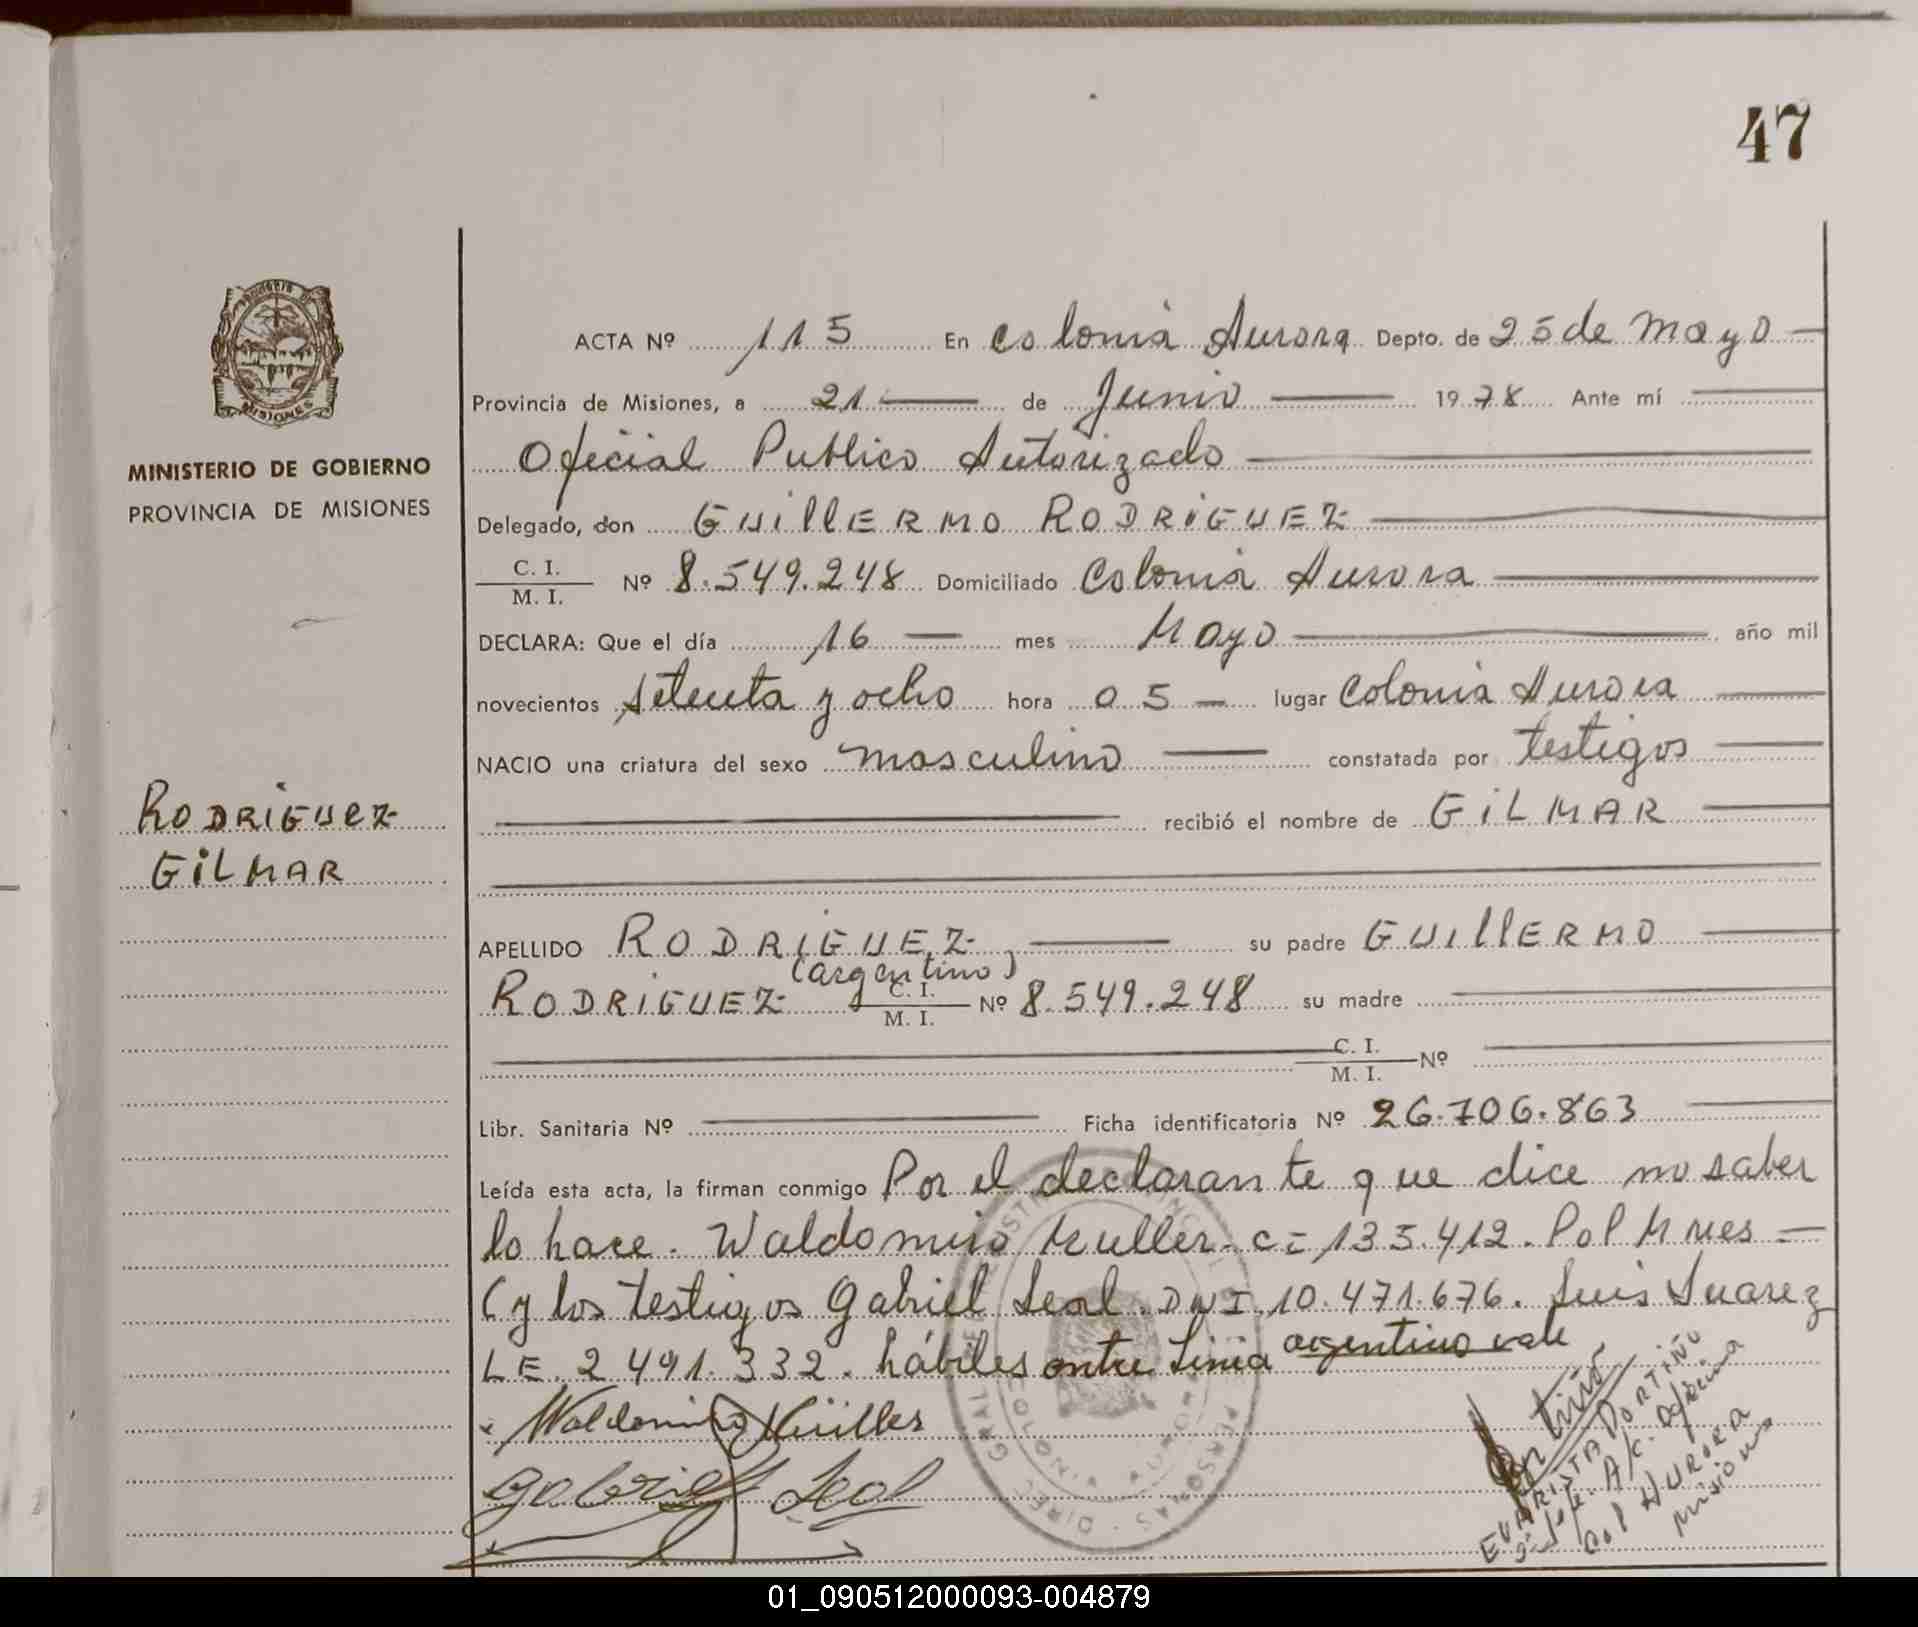 47
ACTA Nº 115 En Colonia Aurora Depto. de 25 de Mayo
Provincia de Misiones, a 21 de Junio 1978 Ante mí
Oficial Publico Autorizado
Delegado, don GUillERMO RODRIGUEZ
C. I.
M. I.
Nº 8.549.248 Domiciliado Colonia Aurora
DECLARA: Que el día 16 mes Mayo año mil
novecientos setenta y ocho hora 05 lugar Colonia Aurora
NACIO una criatura del sexo masculino constatada por testigos
recibió el nombre de GiLMAR
APELLIDO RODRIGUEZ su padre GUillERMO
(argentino)
RODRIGUEZ C. I. M. I. Nº 8.549.248 su madre
C. I. M. I. Nº
Libr. Sanitaria Nº Ficha identificatoria Nº 26.706.863
Leída esta acta, la firman conmigo Por el declarante que dice no saber
lo hace. Waldomiro Muller. C= 135.412. Pol Mnes =
(y los testigos Gabriel Leal. DNI 10.471.676. Luis Suarez
LE. 2491.332. hábiles entre Linia argentino vale
Waldomiro Müller
Gabriel Leal
EVARISTA PORTIÑO
A/c. oficina
Col AURORA
Misiones
MISIONES
MINISTERIO DE GOBIERNO
PROVINCIA DE MISIONES
RODRiGUeZ
GiLMAR
01_090512000093-004879